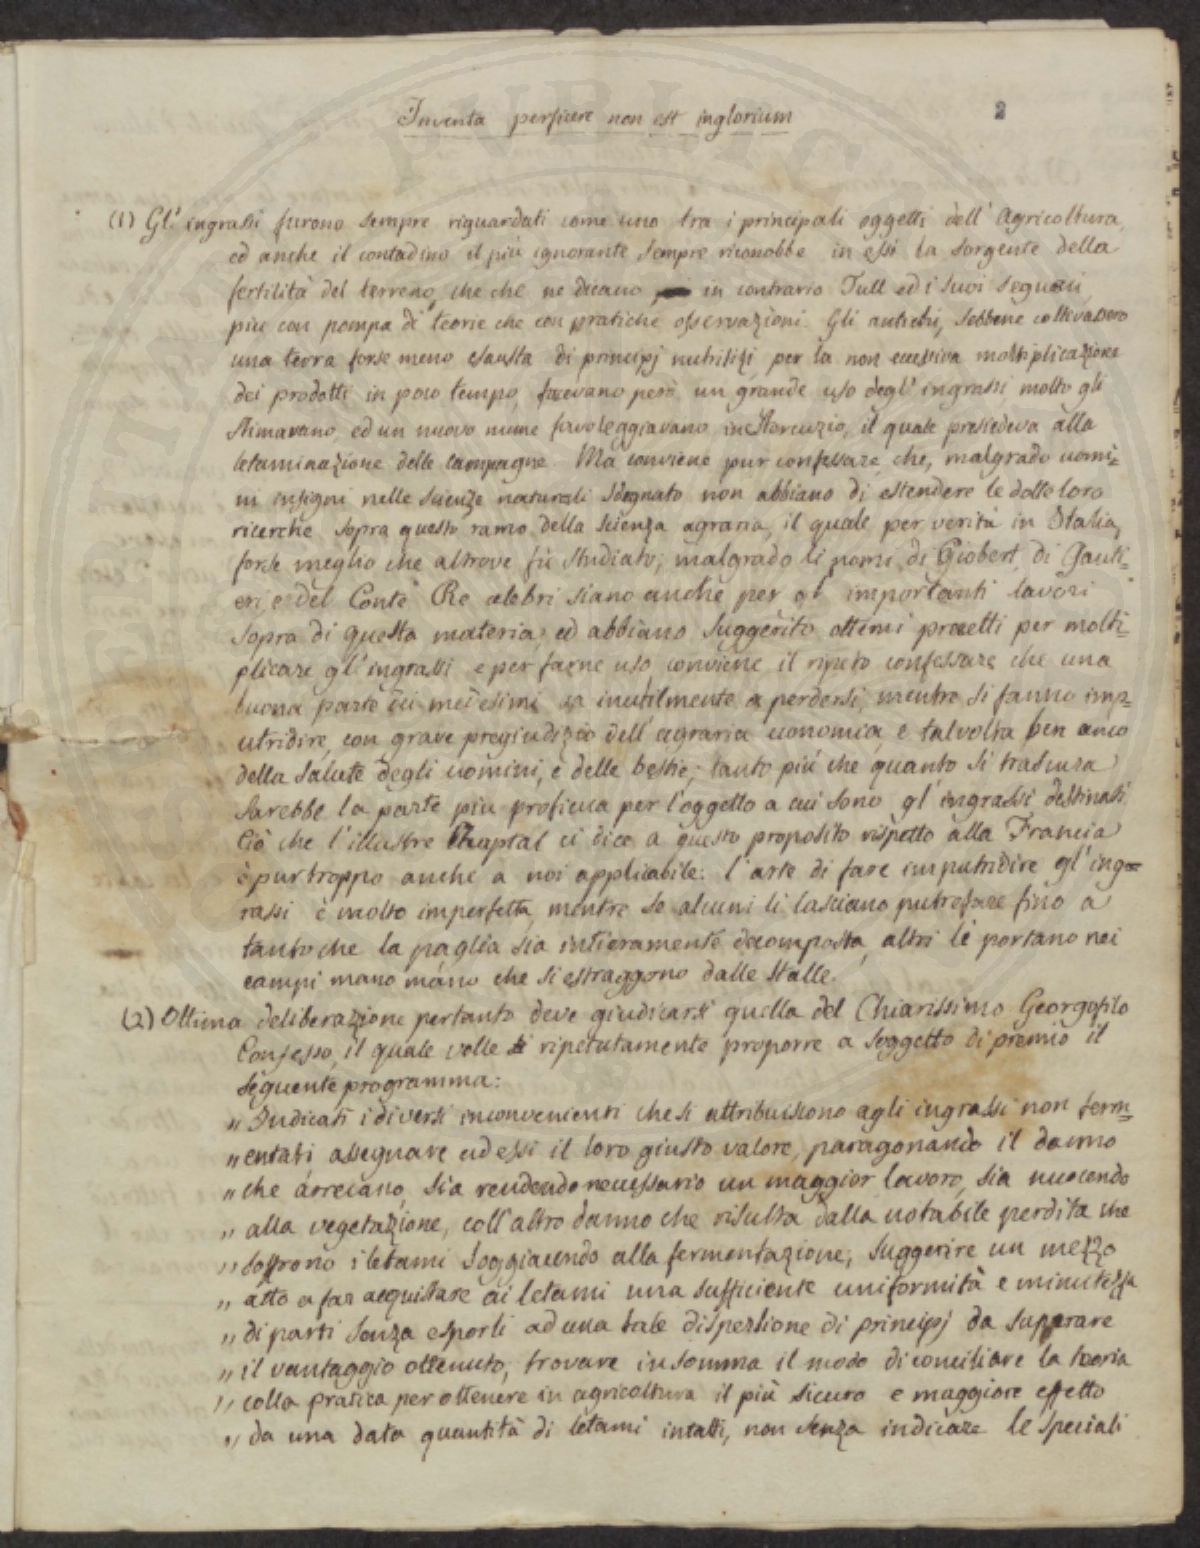 Inventa perficere non est inglorium
2
(1) Gl' ingrassi furono sempre riguardati come uno tra i principali oggetti dell' Agricoltura,
ed anche il contadino il più ignorante sempre riconobbe in essi la sorgente della
fertilità del terreno, che che ne dicano in contrario Tull ed i suoi seguaci,
più con pompa di teorie che con pratiche osservazioni. Gli antichi, sebbene coltivassero
una terra forse meno esausta di principj nutritizj, per la non eccessiva moltiplicazione
dei prodotti in poco tempo, facevano però un grande uso degl' ingrassi molto gli
stimavano, ed un nuovo nume favoleggiavano in Stercuzio, il quale presiedeva alla
letaminazione delle campagne. Ma conviene pur confessare, che, malgrado uomi=
ni insigni nelle scienze naturali sdegnato non abbiano di estendere le dotte loro
ricerche sopra questo ramo della scienza agraria, il quale per verità in Italia,
forse meglio che altrove fù studiato; malgrado li nomi di Giobert, di Gauti=
eri, e del Conte Re celebri siano anche per gl' importanti lavori
sopra di questa materia, ed abbiano suggerito ottimi precetti per molti=
plicare gl' ingrassi e per farne uso, conviene il ripeto confessare che una
buona parte dei medesimi va inutilmente a perdersi, mentre si fanno imp=
utridire, con grave pregiudizio dell' agraria economia, e talvolta ben anco
della salute degli uomini, e delle bestie; tanto più che quanto si trascura
sarebbe la parte più proficua per l'oggetto a cui sono gl' ingrassi destinati.
Ciò che l'illustre Chaptal ci dice a questo proposito rispetto alla Francia
è pur troppo anche a noi applicabile: l'arte di fare imputridire gl' ing=
rassi è molto imperfetta, mentre se alcuni li lasciano putrefare fino a
tanto che la paglia sia intieramente decomposta, altri le portano nei
campi mano mano che si estraggono dalle stalle.
(2) Ottima deliberazione pertanto deve giudicarsi quella del Chiarissimo Georgofilo
Confesso, il quale volle ripetutamente proporre a soggetto di premio il
seguente programma:
„ Indicati i diversi inconvenienti che si attribuiscono agli ingrassi non ferm=
„ entati, assegnare ad essi il loro giusto valore, paragonando il danno
„ che arrecano, sia rendendo necessario un maggior lavoro, sia nuocendo
„ alla vegetazione, coll' altro danno che risulta dalla notabile perdita che
„ soffrono i letami soggiacendo alla fermentazione; suggerire un mezzo
„ atto a far acquistare ai letami una sufficiente uniformità e minutezza
„ di parti senza esporli ad una tale dispersione di principj da superare
„ il vantaggio ottenuto; trovare in somma il modo di conciliare la teoria
„ colla pratica per ottenere in agricoltura il più sicuro e maggiore effetto
„ da una data quantità di letami intatti, non senza indicare le speciali